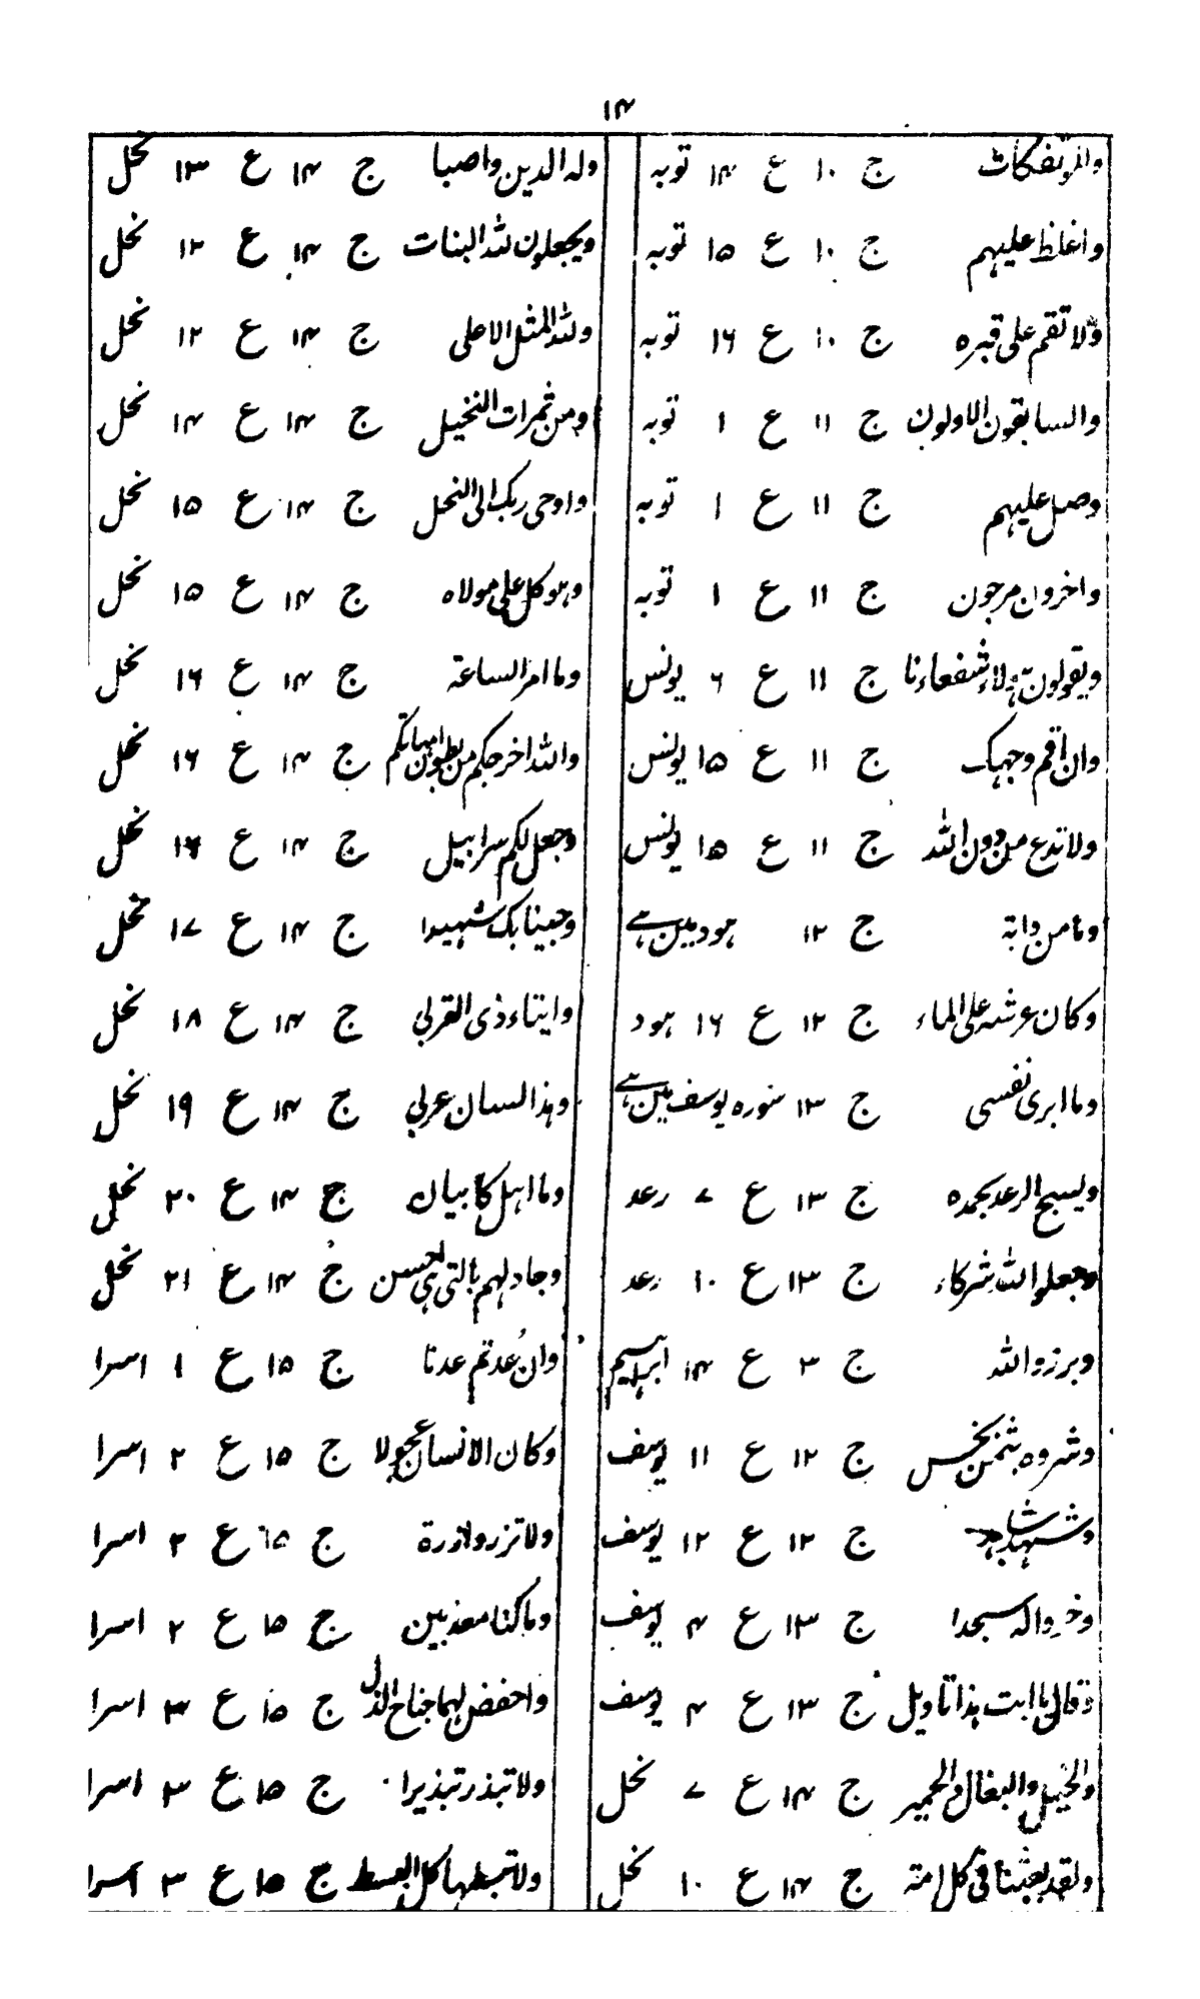 ۱۴
والمؤتفکات ج ۱۰ ع ۱۴ توبہ
واغلظ علیہم ج ۱۰ ع ۱۵ توبہ
ولا تقم علی قبرہ ج ۱۰ ع ۱۶ توبہ
والسابقون الاولون ج ۱۱ ع ۱ توبہ
وصل علیہم ج ۱۱ ع ۱ توبہ
واخرون مرجون ج ۱۱ ع ۱ توبہ
ویقولون ہولاء شفعاءنا ج ۱۱ ع ۶ یونس
وان اقم وجہک ج ۱۱ ع ۱۵ یونس
ولا تدع من دون اللہ ج ۱۱ ع ۱۵ یونس
وما من دابۃ ج ۱۲ ہود میں ہے
وکان عرشہ علی الماء ج ۱۲ ع ۱۶ ہود
وما ابری نفسی ج ۱۳ سورہ یوسف میں ہے
ویسبح الرعد بحمدہ ج ۱۳ ع ۷ رعد
وجعلوا للہ شرکاء ج ۱۳ ع ۱۰ رعد
وبرزوا للہ ج ۳ ع ۱۴ ابراہیم
وشروہ بثمن بخس ج ۱۲ ع ۱۱ یوسف
وشہد شاہد ج ۱۲ ع ۱۲ یوسف
وخروا لہ سجدا ج ۱۳ ع ۴ یوسف
وقال یا ابت ہذا تاویل ج ۱۳ ع ۴ یوسف
والخیل والبغال والحمیر ج ۱۴ ع ۷ نحل
ولقد بعثنا فی کل امۃ ج ۱۴ ع ۱۰ نحل
ولہ الدین واصبا ج ۱۴ ع ۱۳ نحل
ویجعلون للہ البنات ج ۱۴ ع ۱۲ نحل
وللہ المثل الاعلی ج ۱۴ ع ۱۲ نحل
ومن ثمرات النخیل ج ۱۴ ع ۱۴ نحل
واوحی ربک الی النحل ج ۱۴ ع ۱۵ نحل
وہو کل علی مولاہ ج ۱۴ ع ۱۵ نحل
وما امر الساعۃ ج ۱۴ ع ۱۶ نحل
واللہ اخرجکم من بطون امہاتکم ج ۱۴ ع ۱۶ نحل
وجعل لکم سرابیل ج ۱۴ ع ۱۶ نحل
وجینا بک شہیدا ج ۱۴ ع ۱۷ نحل
وایتاء ذی القربی ج ۱۴ ع ۱۸ نحل
وہذا لسان عربی ج ۱۴ ع ۱۹ نحل
وما اہل کا بیان ج ۱۴ ع ۲۰ نحل
وجادلہم بالتی ہی احسن ج ۱۴ ع ۲۱ نحل
وان عدتم عدنا ج ۱۵ ع ۱ اسرا
وکان الانسان عجولا ج ۱۵ ع ۲ اسرا
ولا تزر وازرۃ ج ۱۵ ع ۲ اسرا
وما کنا معذبین ج ۱۵ ع ۲ اسرا
واخفض لہما جناح الذل ج ۱۵ ع ۳ اسرا
ولا تبذر تبذیرا ج ۱۵ ع ۳ اسرا
ولا تبسطہا کل البسط ج ۱۵ ع ۳ اسرا